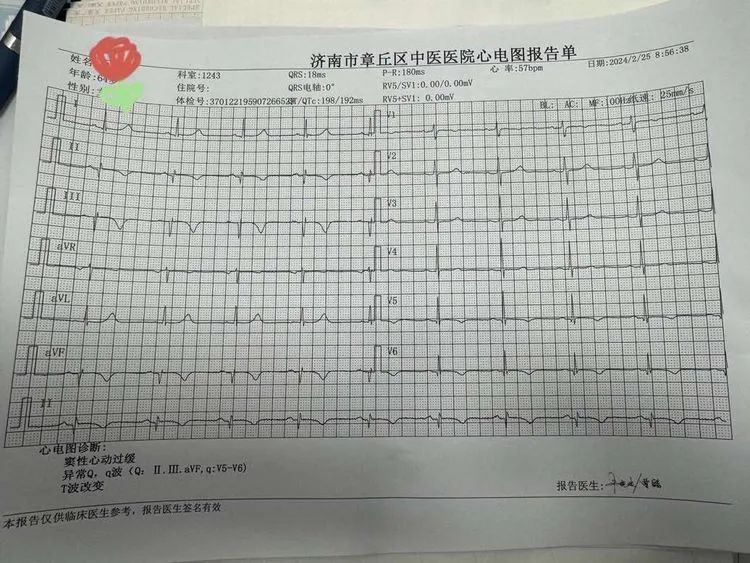 SPECIAL RECORDING PAPER
济南市章丘区中医医院心电图报告单
姓名
科室:1243 QRS:18ms P-R:180ms 心 率:57bpm 日期:2024/2/25 8:56:38
年龄:64
住院号: QRS电轴:0° RV5/SV1:0.00/0.00mV
性别:
体检号:37012219590726653 /QTc:198/192ms RV5+SV1: 0.00mV BL: AC: MF:100Hz纸速: 25mm/s
I V1
II V2
III V3
aVR V4
aVL V5
aVF V6
II
心电图诊断:
窦性心动过缓
异常Q, q波（Q: II.III.aVF,q:V5-V6)
T波改变
报告医生:
本报告仅供临床医生参考, 报告医生签名有效